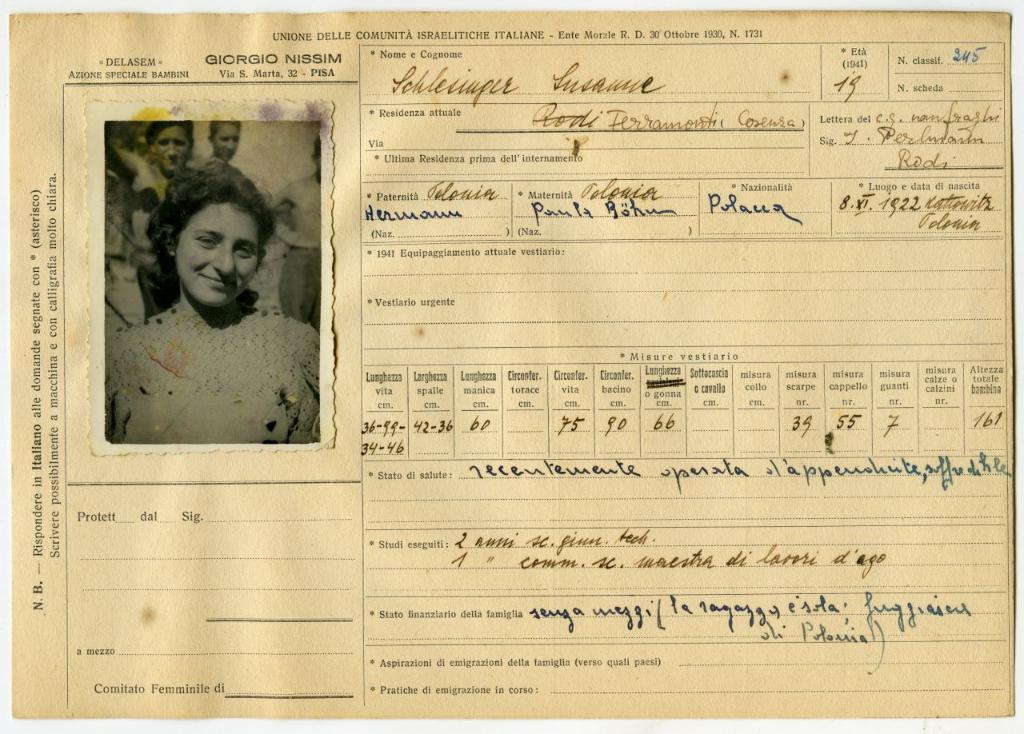 UNIONE DELLE COMUNITÀ ISRAELITICHE ITALIANE - Ente Morale R. D. 30 Ottobre 1930, N. 1731
« DELASEM »
AZIONE SPECIALE BAMBINI
GIORGIO NISSIM
Via S. Marta, 32 - PISA
N. B. — Rispondere in Italiano alle domande segnate con * (asterisco)
Scrivere possibilmente a macchina e con calligrafia molto chiara.
* Nome e Cognome
Schlesinger Susanne
* Età
(1941)
19
N. classif. 245
N. scheda
* Residenza attuale Rodi Ferramonti (Cosenza)
Via
* Ultima Residenza prima dell'internamento
Lettera del c.g. naufraghi
Sig. J. Perlmann
Rodi
* Paternità Polonia
Hermann
(Naz. )
* Maternità Polonia
Paula Böhm
(Naz. )
* Nazionalità
Polacca
* Luogo e data di nascita
8. XI. 1922 Kattowitz
Polonia
* 1941 Equipaggiamento attuale vestiario:
* Vestiario urgente
* Misure vestiario
Lunghezza vita cm. 36-99-34-46
Larghezza spalle cm. 42-36
Lunghezza manica cm. 60
Circonfer. torace cm.
Circonfer. vita cm. 75
Circonfer. bacino cm. 90
Lunghezza o gonna cm. 66
Sottocoscia o cavallo cm.
misura collo cm.
misura scarpe nr. 39
misura cappello nr. 55
misura guanti nr. 7
misura calze o calzini nr.
Altezza totale bambina 161
* Stato di salute: recentemente operata d'appendicite, soffre di
* Studi eseguiti: 2 anni sc. ginn. tech.
1 " comm. sc. maestra di lavori d'ago
* Stato finanziario della famiglia senza mezzi (la ragazza è sola;
di Polonia)
* Aspirazioni di emigrazioni della famiglia (verso quali paesi)
* Pratiche di emigrazione in corso:
Protett dal Sig.
a mezzo
Comitato Femminile di